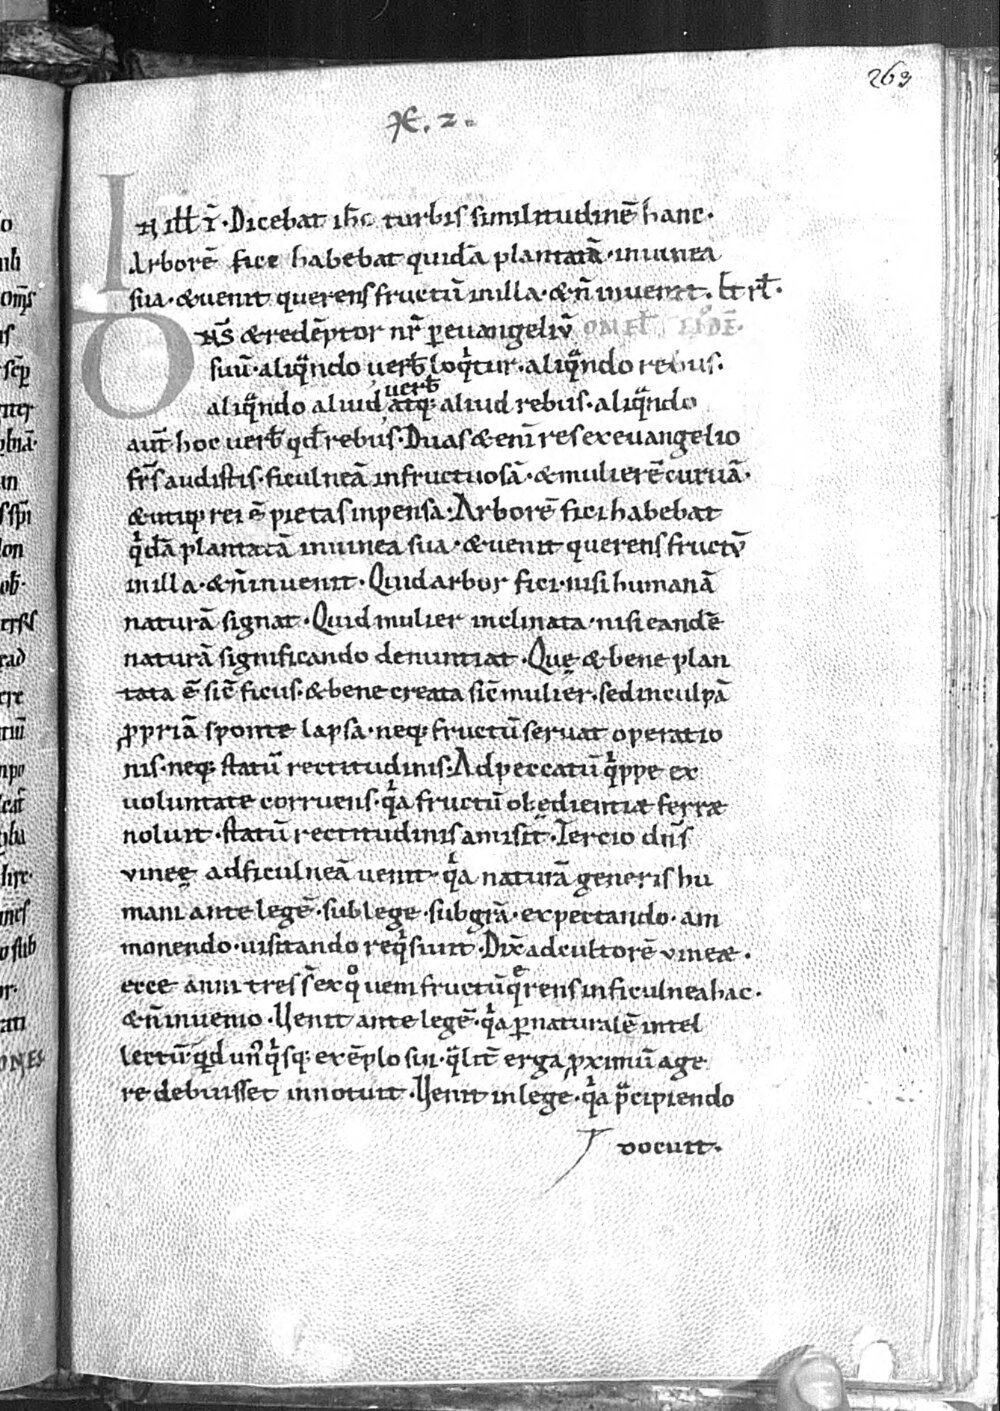 263
In illƚ t̄. Dicebat ih̄c turbis similitudinē hanc.
Arborē fice habebat quidā plantatā. in uinea
sua. & uenit querens fructū in illa. & n̄ inuenit. & rƚ.
Dn̄s & redēptor nr̄ p euangeliū OMEƚ EIᵒDĒ.
suū. aliqͣndo uerb̄ loqͥtur. aliqͣndo rebus.
aliqͣndo aliud uerb̄ atq; aliud rebus. aliqͣndo
aut̄ hoc uerb̄ qd̄ rebus. Duas & eni res ex euangelio
fr̄s audistis. ficulneā infructuosā. & mulierē curuā.
& utiq; rei ē pietas inpensa. Arborē fici habebat
qͥdā plantatā in uinea sua. & uenit querens fructū
in illa. & n̄ inuenit. Quid arbor fici. nisi humanā
naturā signat. Quid mulier inclinata. nisi eandē
naturā significando denuntiat. Quę & bene plan
tata ē sic̄ ficus. & bene creata sic̄ mulier. sed in culpā
ꝓpriā sponte lapsa. neq; fructū seruat operatio
nis. neq; statū rectitudinis. Ad peccatū qͥppe ex
uoluntate corruens. qͥa fructū obędientiæ ferræ
noluit. statū rectitudinis amisit. Tercio dn̄s
vineę ad ficulneā uenit. qͥa naturā generis hu
mani ante legē. sub lege. sub gr̄a. expectando. am
monendo. uisitando reqͥsiuit. Dix̄ ad cultorē vineæ.
ecce anni tres s̄ ex qͦ uem fructū qͤrens in ficulnea hac.
& n̄ inuenio. Uenit ante legē. qͥa p naturalē intel
lectū qd unꝰ qͥsq; exēplo sui. qͣlit̄ erga ꝓximū age
re debuisset innotuit. Uenit in lege. qͥa pͣcipiendo
docuit.